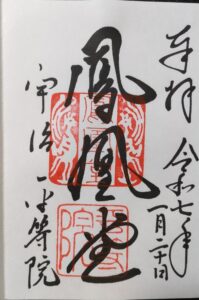 奉拝
令和七年
一月二十日
鳳凰堂
宇治 平等院